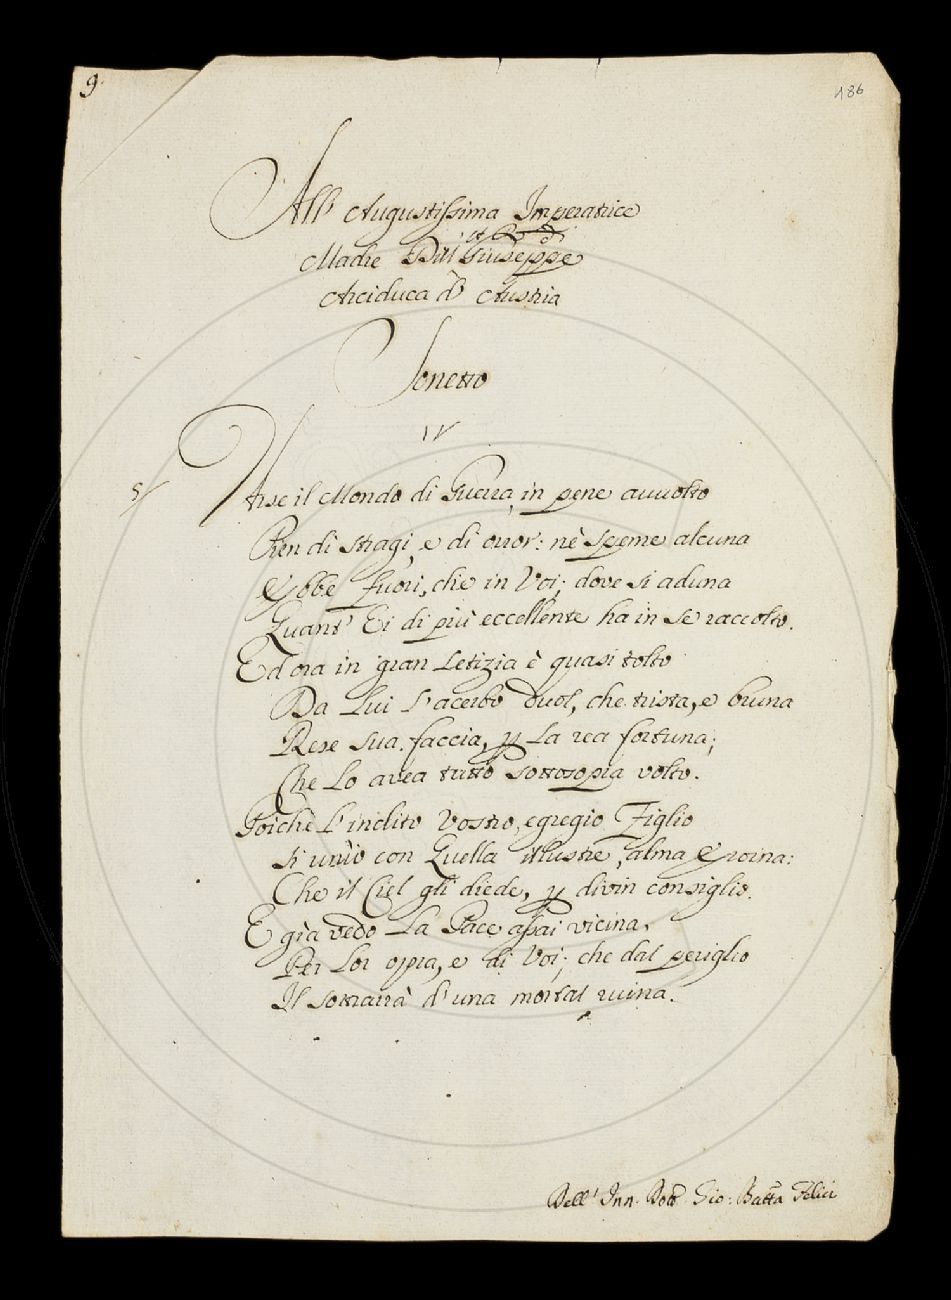 9.
486
All' Augustissima Imperatrice
Madre Dell' Giuseppe
Arciduca d' Austria
Sonetto
IV
5/
Arse il Mondo di Guerra, in pene auuolto
Pien di stragi, e di orror: nè speme alcuna
Ebbe fuori, che in Voi; dove si aduna
Quant' Ei di più eccellente ha in se raccolto.
Ed ora in gran Letizia è quasi tolto
Da Lui l'acerbo duol, che trista, e bruna
Rese sua faccia, p La rea fortuna;
Che Lo avea tutto sottosopra volto.
Poichè L'inclito Vostro, egregio Figlio
Si unìo con Quella illustre, alma Eroina:
Che il Ciel gli diede, p divin consiglio.
E già vedo La Pace assai vicina,
Per Lor opra, e di Voi; che dal periglio
Il sottrarrà d'una mortal ruina.
Dell' Inn. Dott. Gio: Batta Felici